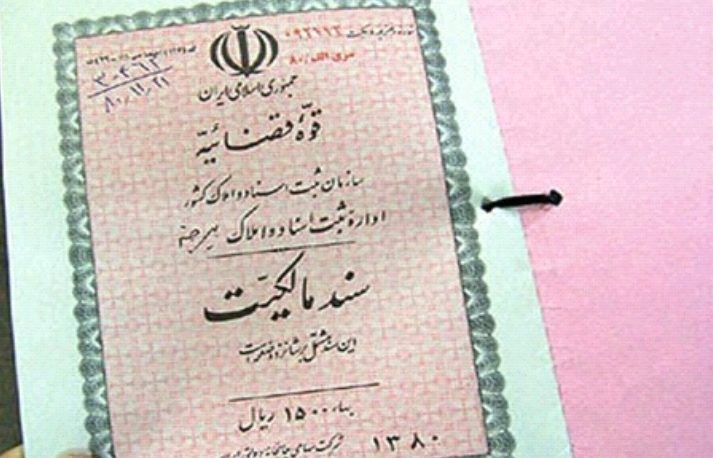 ۰۹۲۱۱۲
سری الف/۸۰
۳۰۴۶۳
۸۰/۱۱/۲۱
جمهوری اسلامی ایران
قوهٔ قضائیه
سازمان ثبت اسناد و املاک کشور
ادارهٔ ثبت اسناد و املاک
سند مالکیت
این سند مشتمل بر شانزده صفحه است
بهاء ۱۵۰۰ ریال
۱۳۸۰
شرکت سهامی چاپخانه